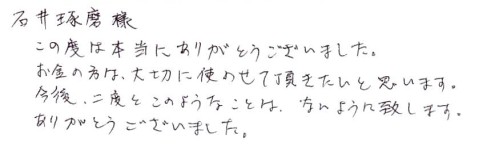 石井琢磨様
この度は本当にありがとうございました。
お金の方は、大切に使わせて頂きたいと思います。
今後、二度とこのようなことは、ないように致します。
ありがとうございました。